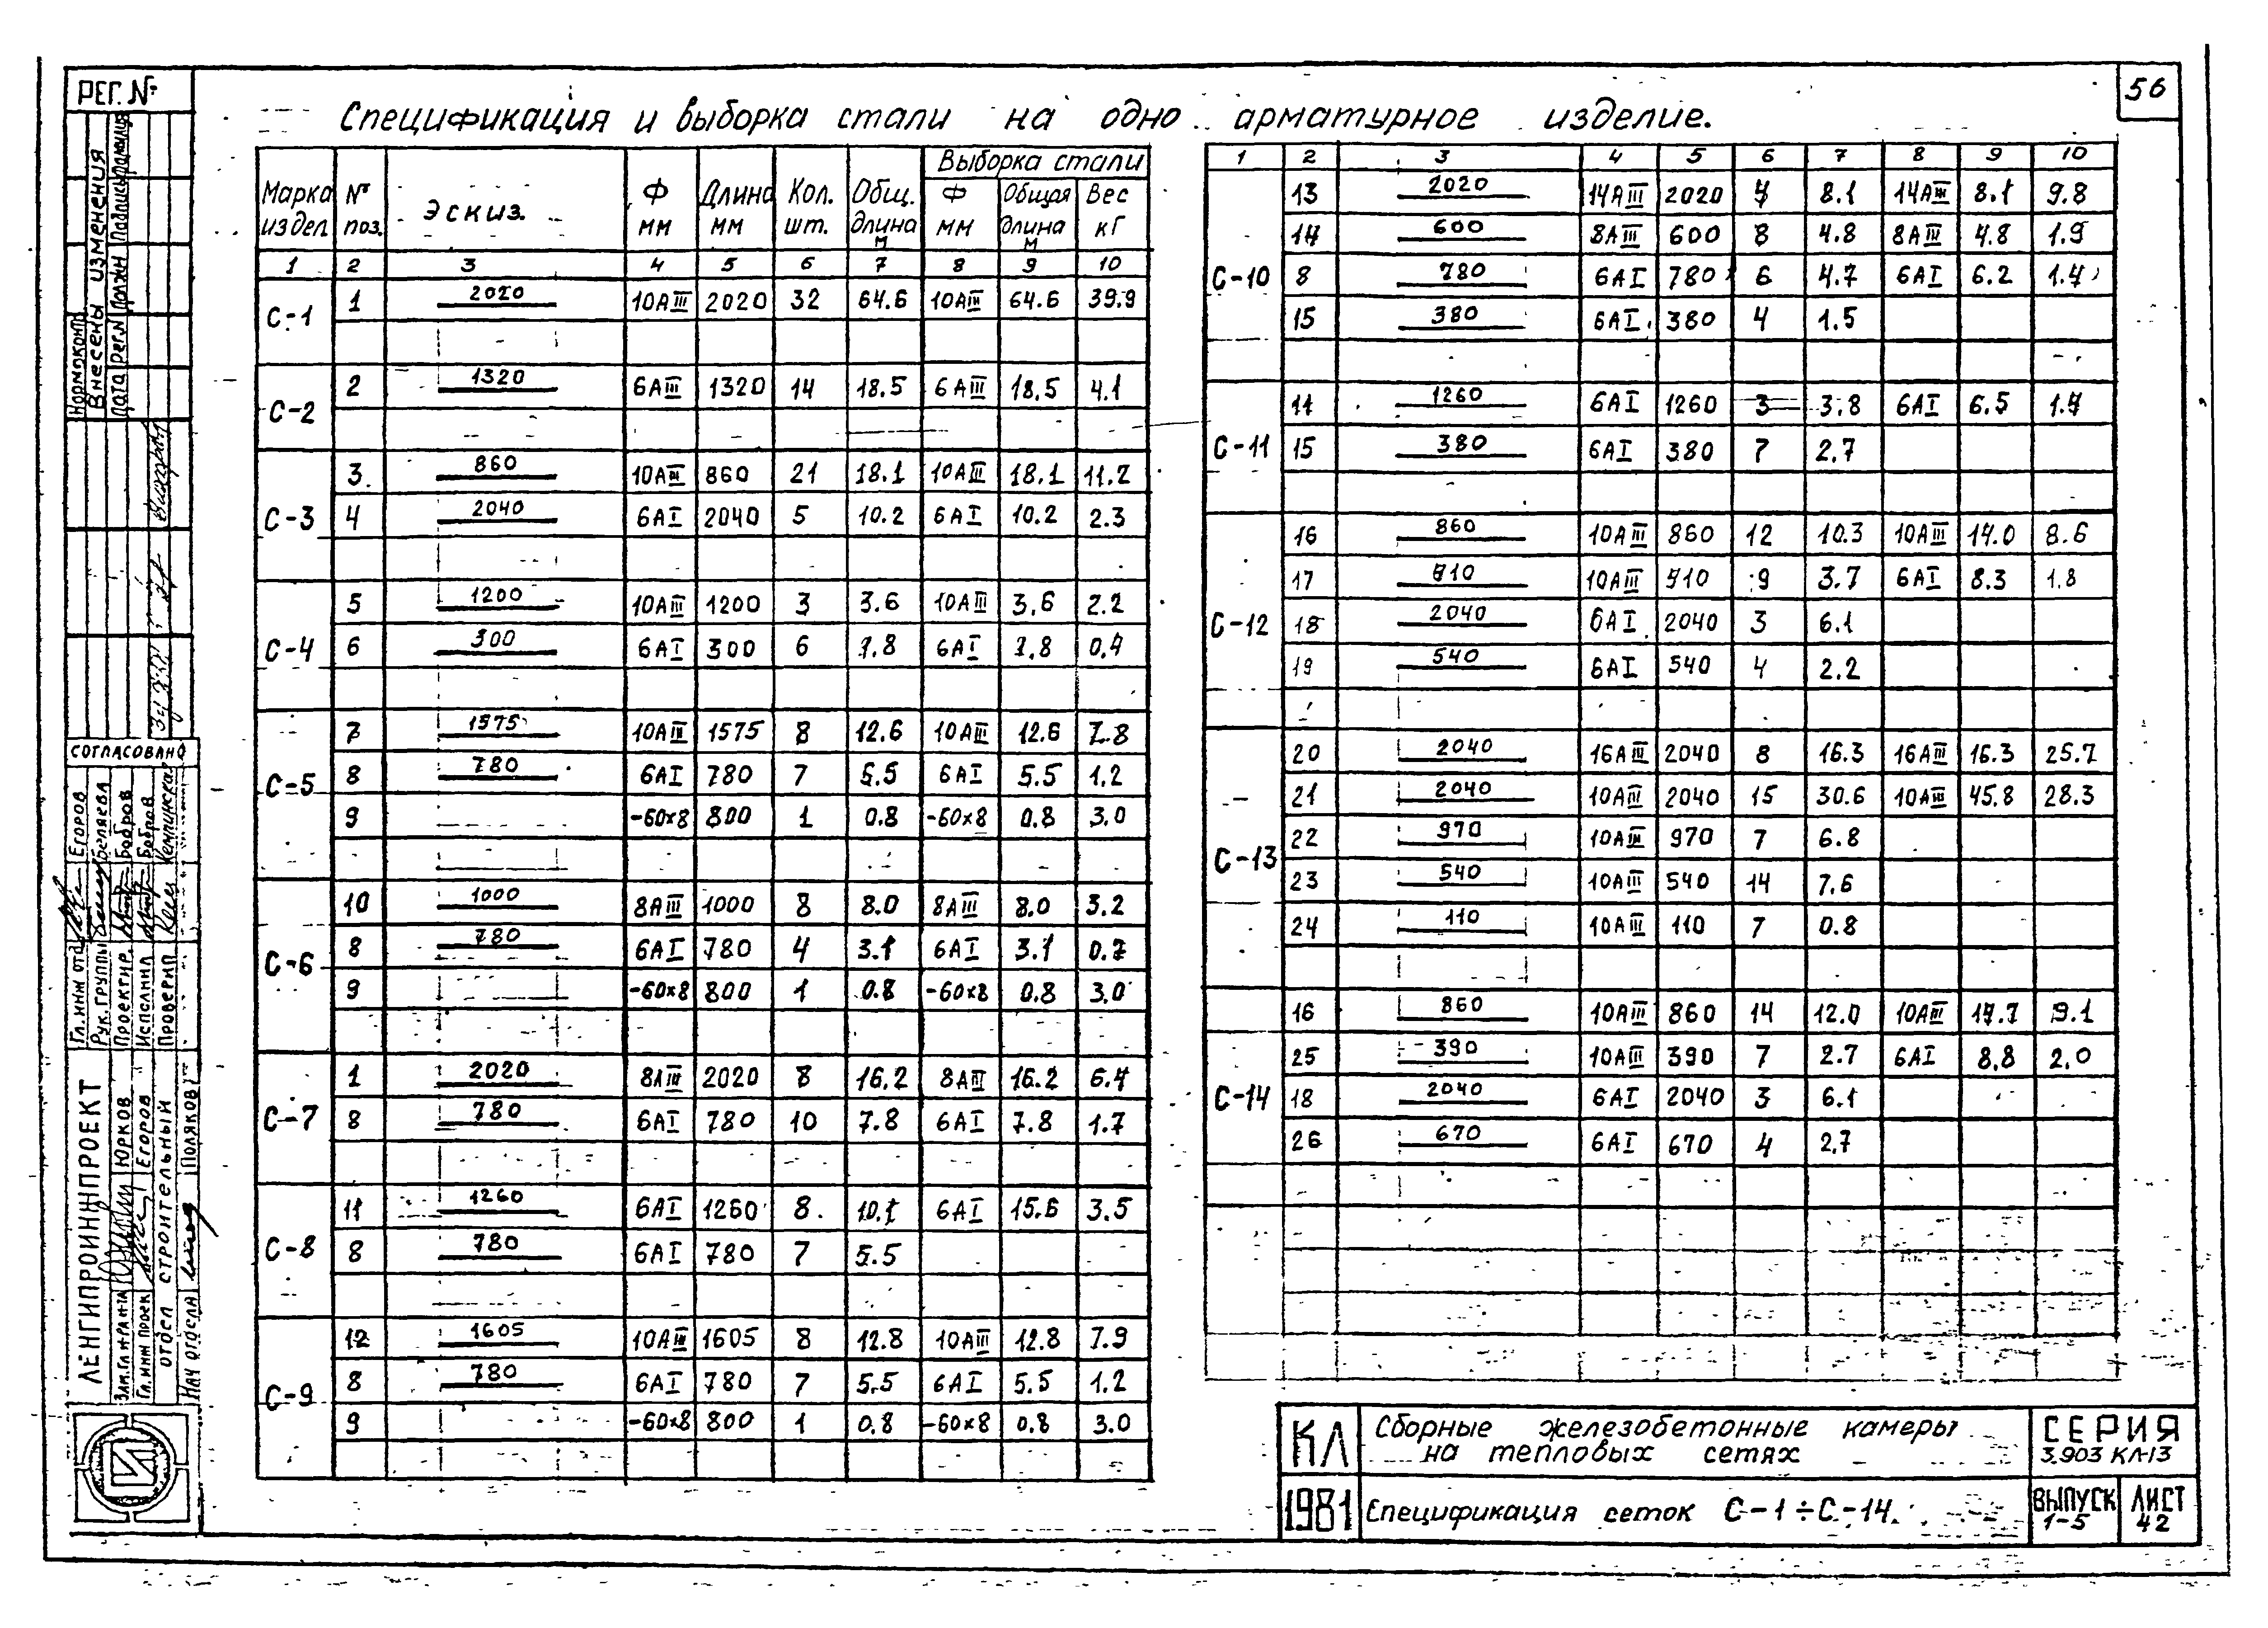 56
РЕГ. №
Спецификация и выборка стали на одно арматурное изделие.
Марка издел. № поз. Эскиз. Ф мм Длина мм Кол. шт. Общ. длина м Выборка стали Ф мм Общая длина м Вес кГ
1 2 3 4 5 6 7 8 9 10
С-1 1 2020 10АIII 2020 32 64.6 10АIII 64.6 39.9
С-2 2 1320 6АIII 1320 14 18.5 6АIII 18.5 4.1
С-3 3 860 10АIII 860 21 18.1 10АIII 18.1 11.2
4 2040 6АI 2040 5 10.2 6АI 10.2 2.3
С-4 5 1200 10АIII 1200 3 3.6 10АIII 3.6 2.2
6 300 6АI 300 6 1.8 6АI 1.8 0.4
С-5 7 1575 10АIII 1575 8 12.6 10АIII 12.6 7.8
8 780 6АI 780 7 5.5 6АI 5.5 1.2
9 -60×8 800 1 0.8 -60×8 0.8 3.0
С-6 10 1000 8АIII 1000 8 8.0 8АIII 8.0 3.2
8 780 6АI 780 4 3.1 6АI 3.1 0.7
9 -60×8 800 1 0.8 -60×8 0.8 3.0
С-7 1 2020 8АIII 2020 8 16.2 8АIII 16.2 6.4
8 780 6АI 780 10 7.8 6АI 7.8 1.7
С-8 11 1260 6АI 1260 8 10.1 6АI 15.6 3.5
8 780 6АI 780 7 5.5
С-9 12 1605 10АIII 1605 8 12.8 10АIII 12.8 7.9
8 780 6АI 780 7 5.5 6АI 5.5 1.2
9 -60×8 800 1 0.8 -60×8 0.8 3.0
1 2 3 4 5 6 7 8 9 10
С-10 13 2020 14АIII 2020 4 8.1 14АIII 8.1 9.8
14 600 8АIII 600 8 4.8 8АIII 4.8 1.9
8 780 6АI 780 6 4.7 6АI 6.2 1.4
15 380 6АI 380 4 1.5
С-11 11 1260 6АI 1260 3 3.8 6АI 6.5 1.4
15 380 6АI 380 7 2.7
С-12 16 860 10АIII 860 12 10.3 10АIII 14.0 8.6
17 410 10АIII 410 9 3.7 6АI 8.3 1.8
18 2040 6АI 2040 3 6.1
19 540 6АI 540 4 2.2
С-13 20 2040 16АIII 2040 8 16.3 16АIII 16.3 25.7
21 2040 10АIII 2040 15 30.6 10АIII 45.8 28.3
22 970 10АIII 970 7 6.8
23 540 10АIII 540 14 7.6
24 110 10АIII 110 7 0.8
С-14 16 860 10АIII 860 14 12.0 10АIII 14.7 9.1
25 390 10АIII 390 7 2.7 6АI 8.8 2.0
18 2040 6АI 2040 3 6.1
26 670 6АI 670 4 2.7
КЛ Сборные железобетонные камеры
на тепловых сетях
СЕРИЯ
3.903 КЛ-13
1981 Спецификация сеток С-1÷С-14.
ВЫПУСК
1-5
ЛИСТ
42
Внесены изменения
Нормоконтр.
Дата Рег.N Должн Подпись Фамилия
СОГЛАСОВАНО
Гл. инж отд. Егоров
Рук. группы Беляева
Проектир. Бобров
Исполнил Бобров
Проверил
ЛЕНГИПРОИНЖПРОЕКТ
Зам. гл. инж Юрков
Гл. инж проек Егоров
отдел строительный
Нач отдела Поляков